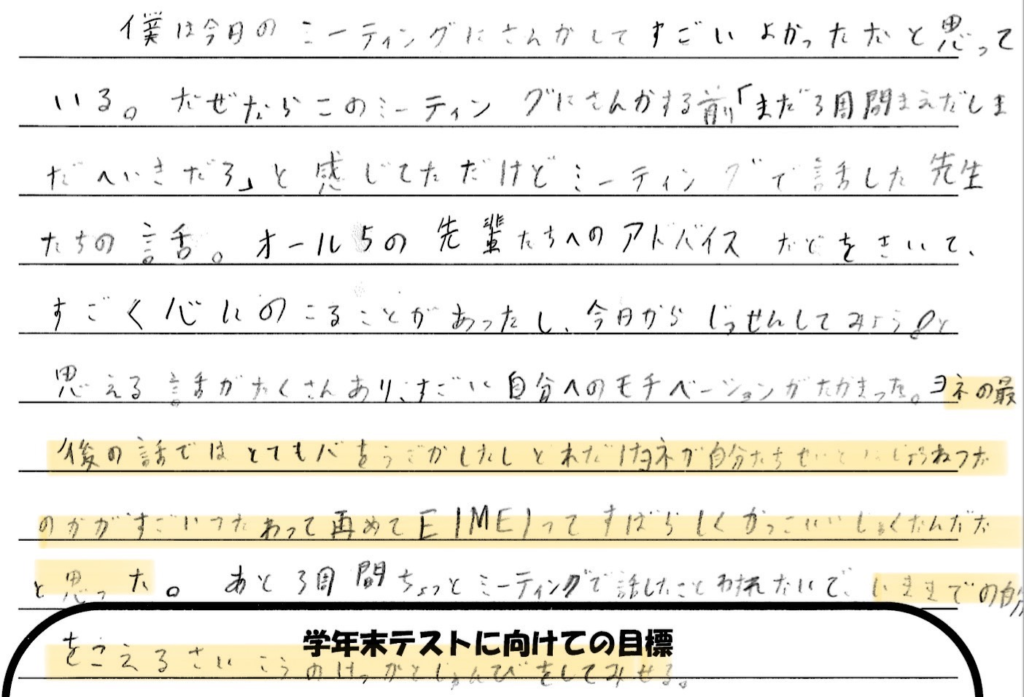 僕は今日のミーティングにさんかしてすごいよかっただと思って
いる。だぜならこのミーティングにさんかする前「まだ3周間まえだしま
だへいきだろ」と感じてただけどミーティングで話した先生
たちの話。オール5の先輩たちへのアドバイスなどをきいて、
すごく心にのこることがあったし、今日からじっせんしてみようと
思える話がたくさんあり、すごい自分へのモチベーションがたかまった。ヨネの最
後の話ではとても心をうごかしたしどれだけヨネが自分たちせいとにじょうねつな
のかがすごいつたわって再めてEIMEIってすばらしくかっこいいしゅくだんだな
と思った。あと3周間ちょっとミーティングで話したことわすれないで、いままでの自分
学年末テストに向けての目標
をこえるさいこうのけっかとじゅんびをしてみせる。